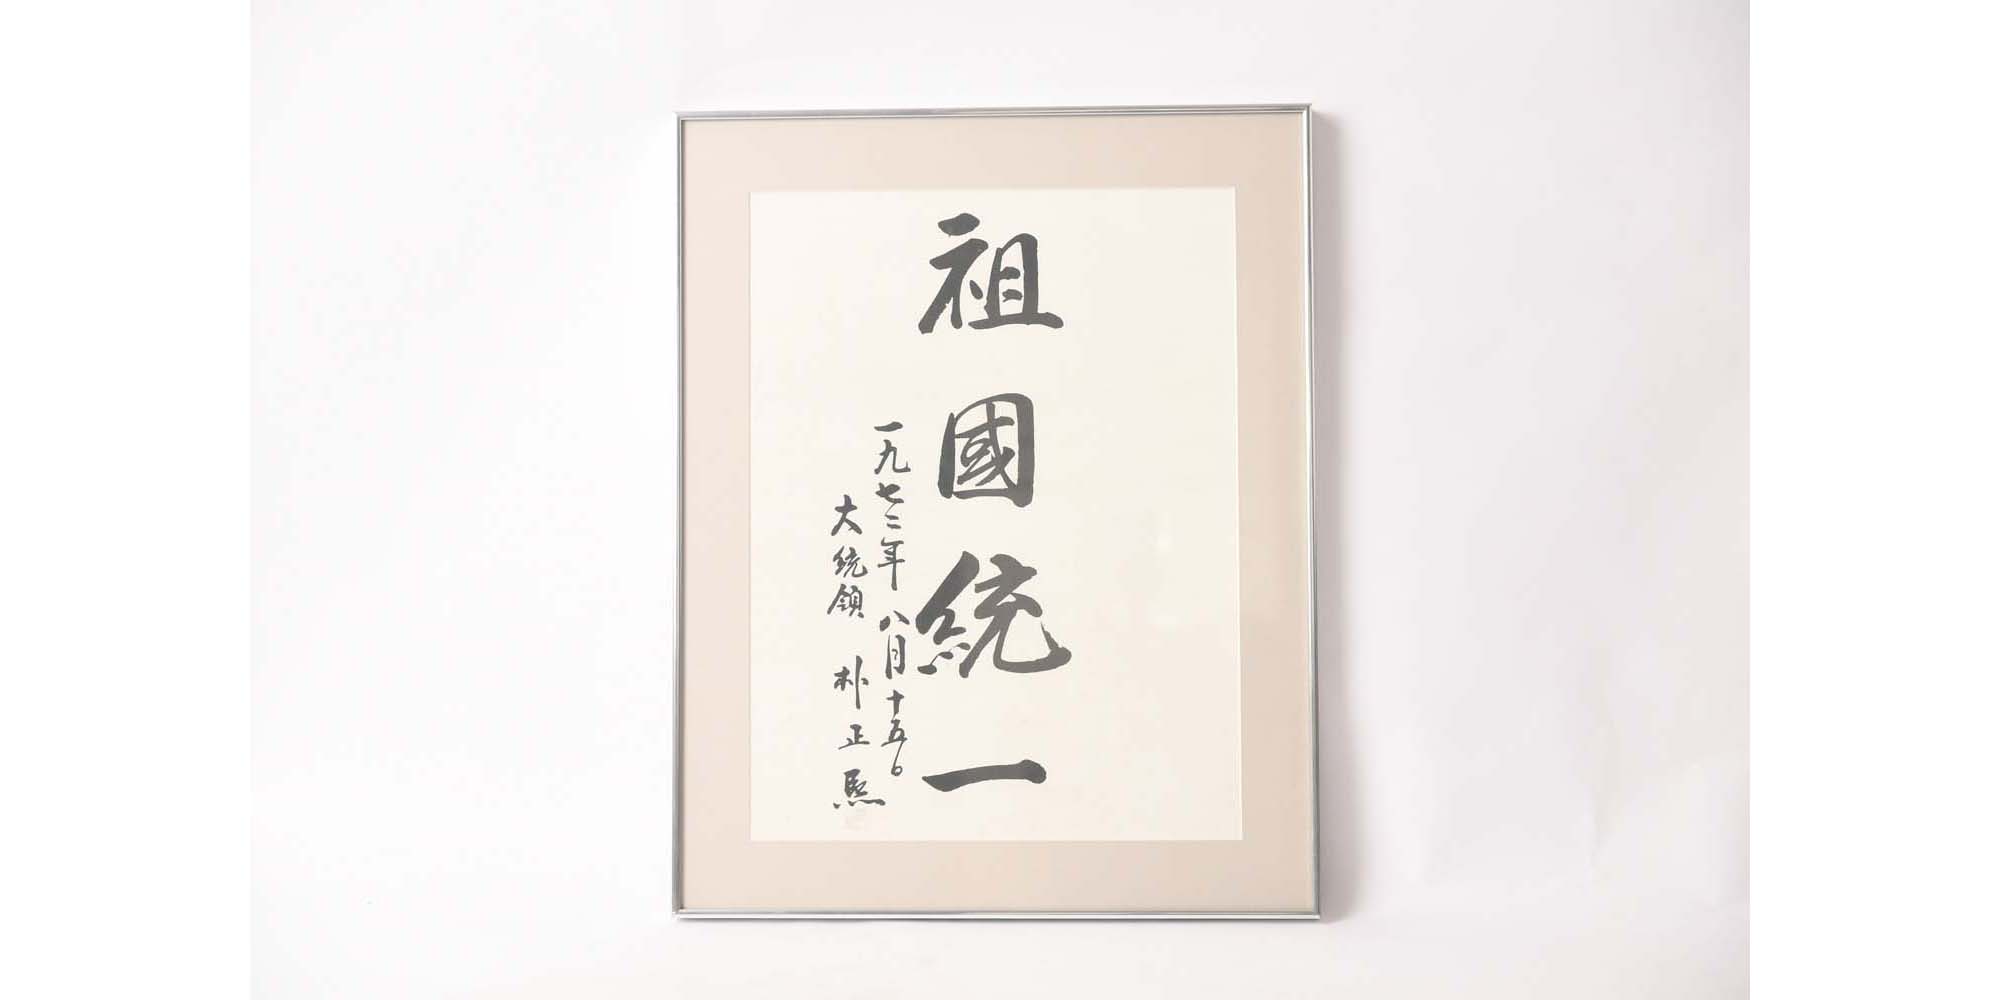 祖國統一
一九七二年 八月十五日
大統領 朴正熙